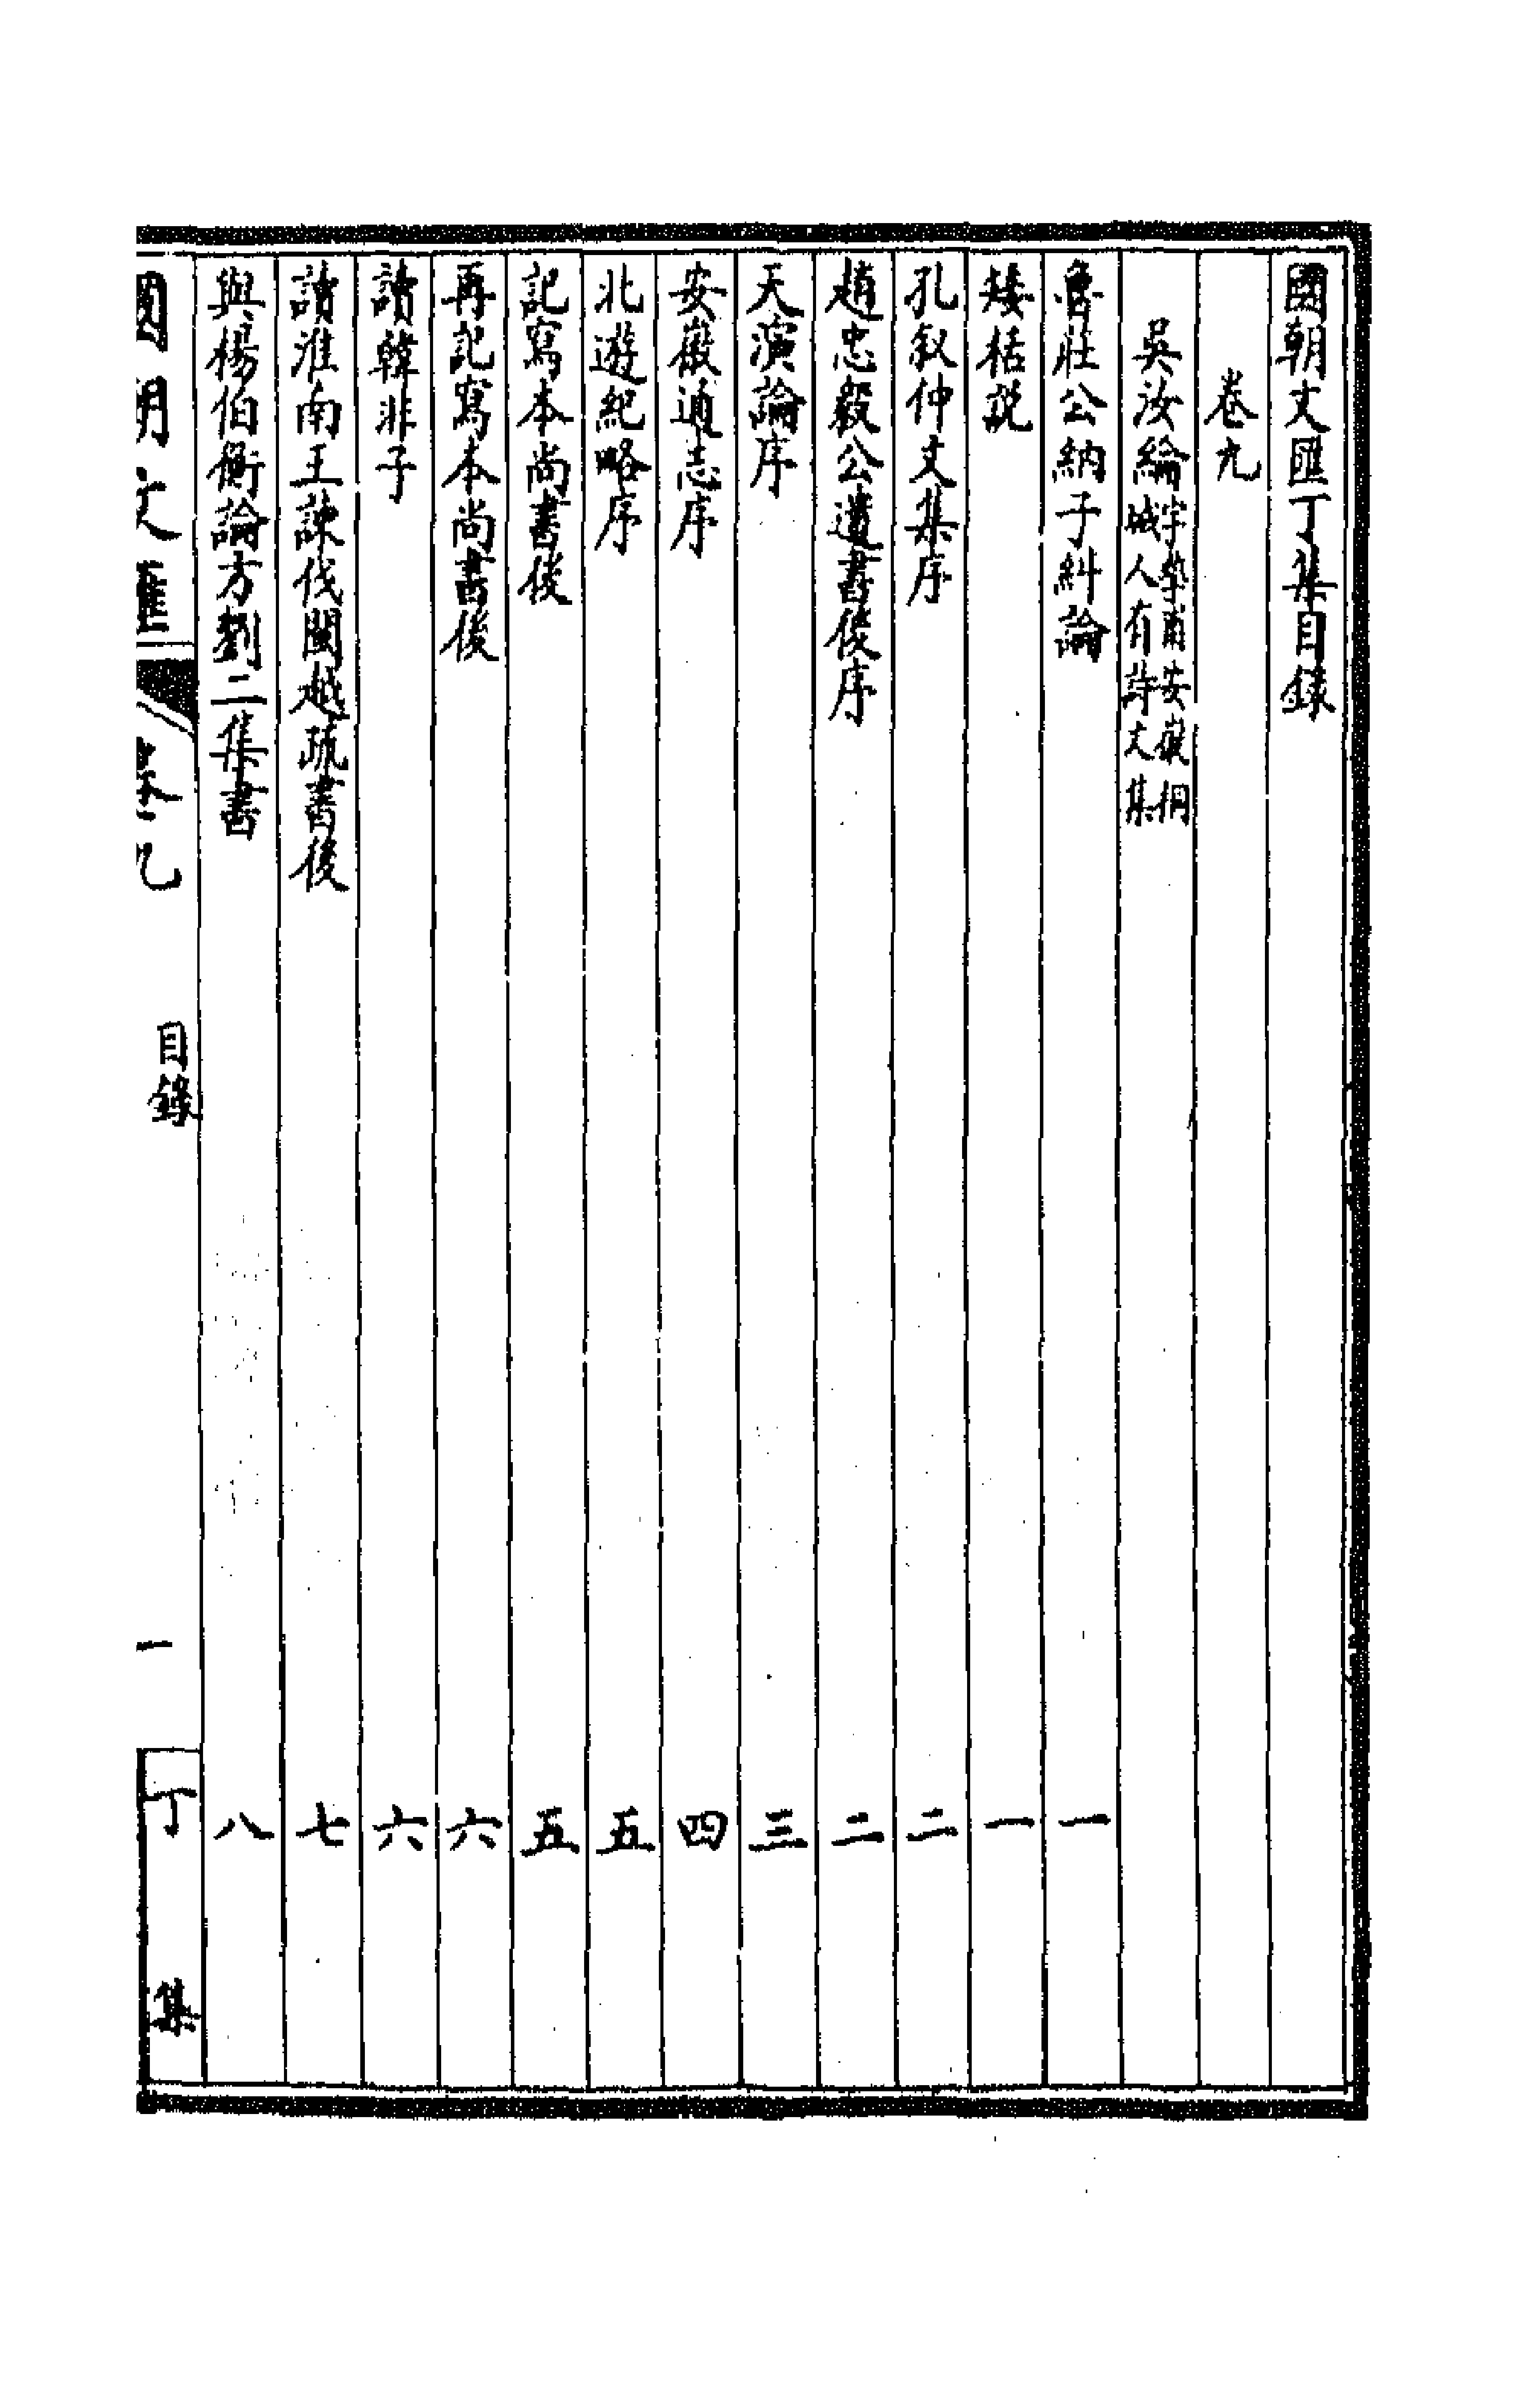 國朝文匯丁集目錄
卷九
吳汝綸字摯甫安徽桐城人有詩文集
魯莊公納子糾論 一
矮栝說 一
孔叙仲文集序 二
趙忠毅公遺書後序 二
天演論序 三
安徽通志序 四
北遊紀略序 五
記寫本尚書後 五
再記寫本尚書後 六
讀韓非子 六
讀淮南王諫伐閩越疏書後 七
與楊伯衡論方劉二集書 八
國朝文匯 卷九 目錄 一 丁集